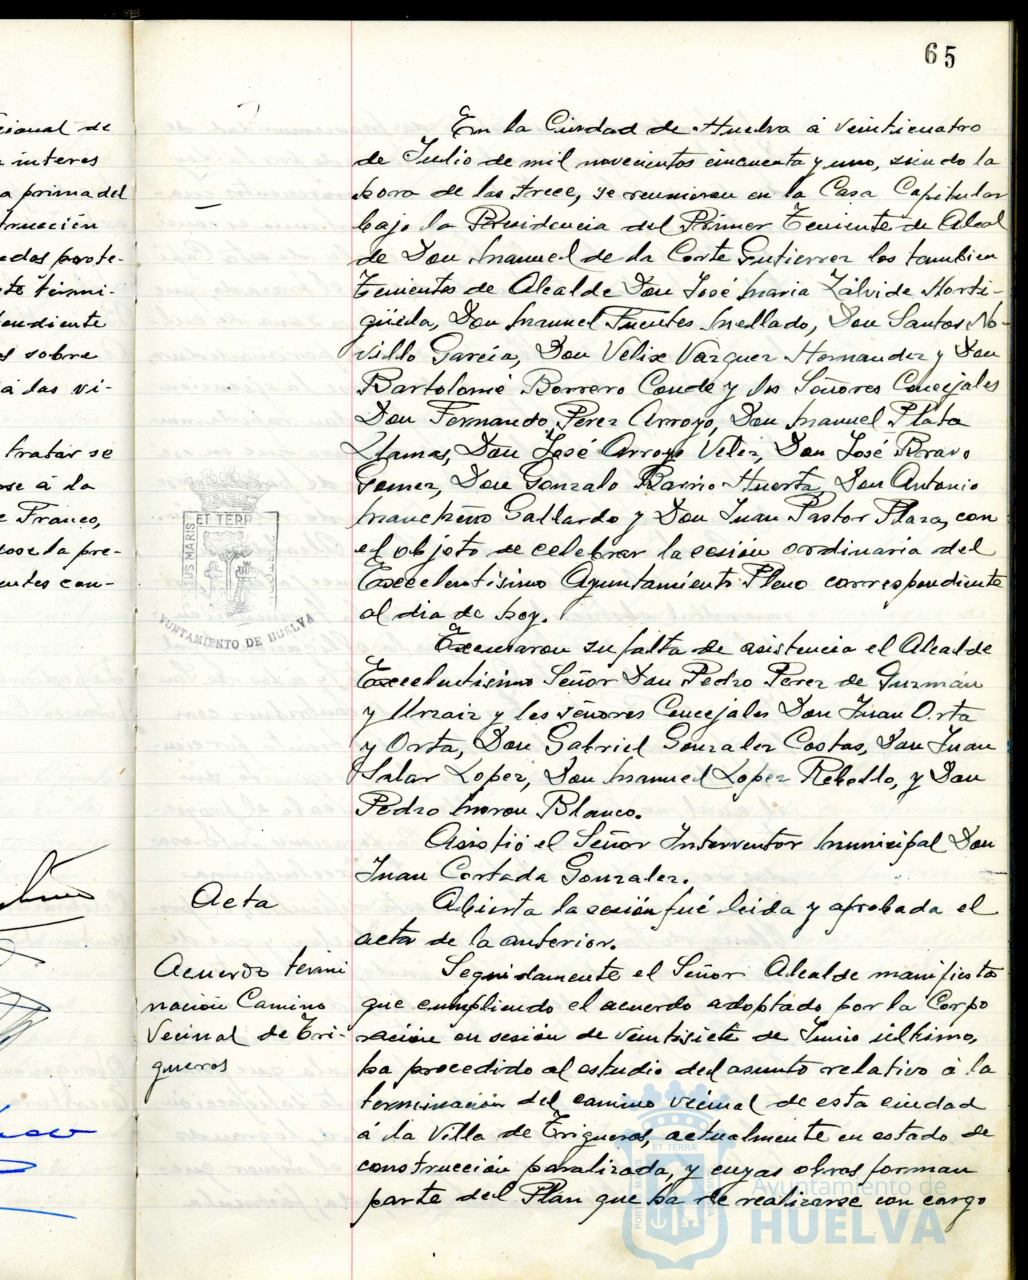 65
cional de
interes
a prima del
trucción
edas porte-
termi-
pendiente
os sobre
a las vi-
tratar se
ose á la
e Franco,
dose la pre-
entes con-
En la Ciudad de Huelva á veinticuatro
de Julio de mil novecientos cincuenta y uno, siendo la
hora de las trece, se reunieron en la Casa Capitular
bajo la Presidencia del Primer Teniente de Alcal
de Don Manuel de la Corte Gutierrez los tambien
Tenientes de Alcalde Don José Maria Zalvide Horti-
güela, Don Manuel Fuentes Mellado, Don Santos No-
villo Garcia, Don Velix Vazquez Hernandez y Don
Bartolomé Borrero Conde y los Señores Concejales
Don Fernando Perez Arroyo, Don Manuel Plata
Llamas, Don José Arroyo Velez, Don José Bravo
Gomez, Don Gonzalo Barrio Huerta, Don Antonio
Mancheño Gallardo y Don Juan Pastor Plaza, con
el objeto de celebrar la sesión ordinaria del
Excelentisimo Ayuntamiento Pleno correspondiente
al dia de hoy.
Excusaron su falta de asistencia el Alcalde
Excelentisimo Señor Don Pedro Perez de Guzmán
y Urzaiz y los señores Concejales Don Juan Orta
y Orta, Don Gabriel Gonzalez Costas, Don Juan
Salas Lopez, Don Manuel Lopez Rebollo, y Don
Pedro Moron Blanco.
Asistió el Señor Interventor Municipal Don
Juan Cortada Gonzalez.
Acta
Abierta la sesión fué leida y aprobada el
acta de la anterior.
Acuerdo termi
nación Camino
Vecinal de Tri-
gueros
Seguidamente el Señor Alcalde manifiesta
que cumpliendo el acuerdo adoptado por la Corpo
ración en sesión de veintisiete de Junio último,
ha procedido al estudio del asunto relativo á la
terminación del camino vecinal de esta ciudad
á la Villa de Trigueros, actualmente en estado de
construcción paralizada, y cuyas obras forman
parte del Plan que ha de realizarse con cargo
ET TERR
AYUNTAMIENTO DE HUELVA
Ayuntamiento de
HUELVA